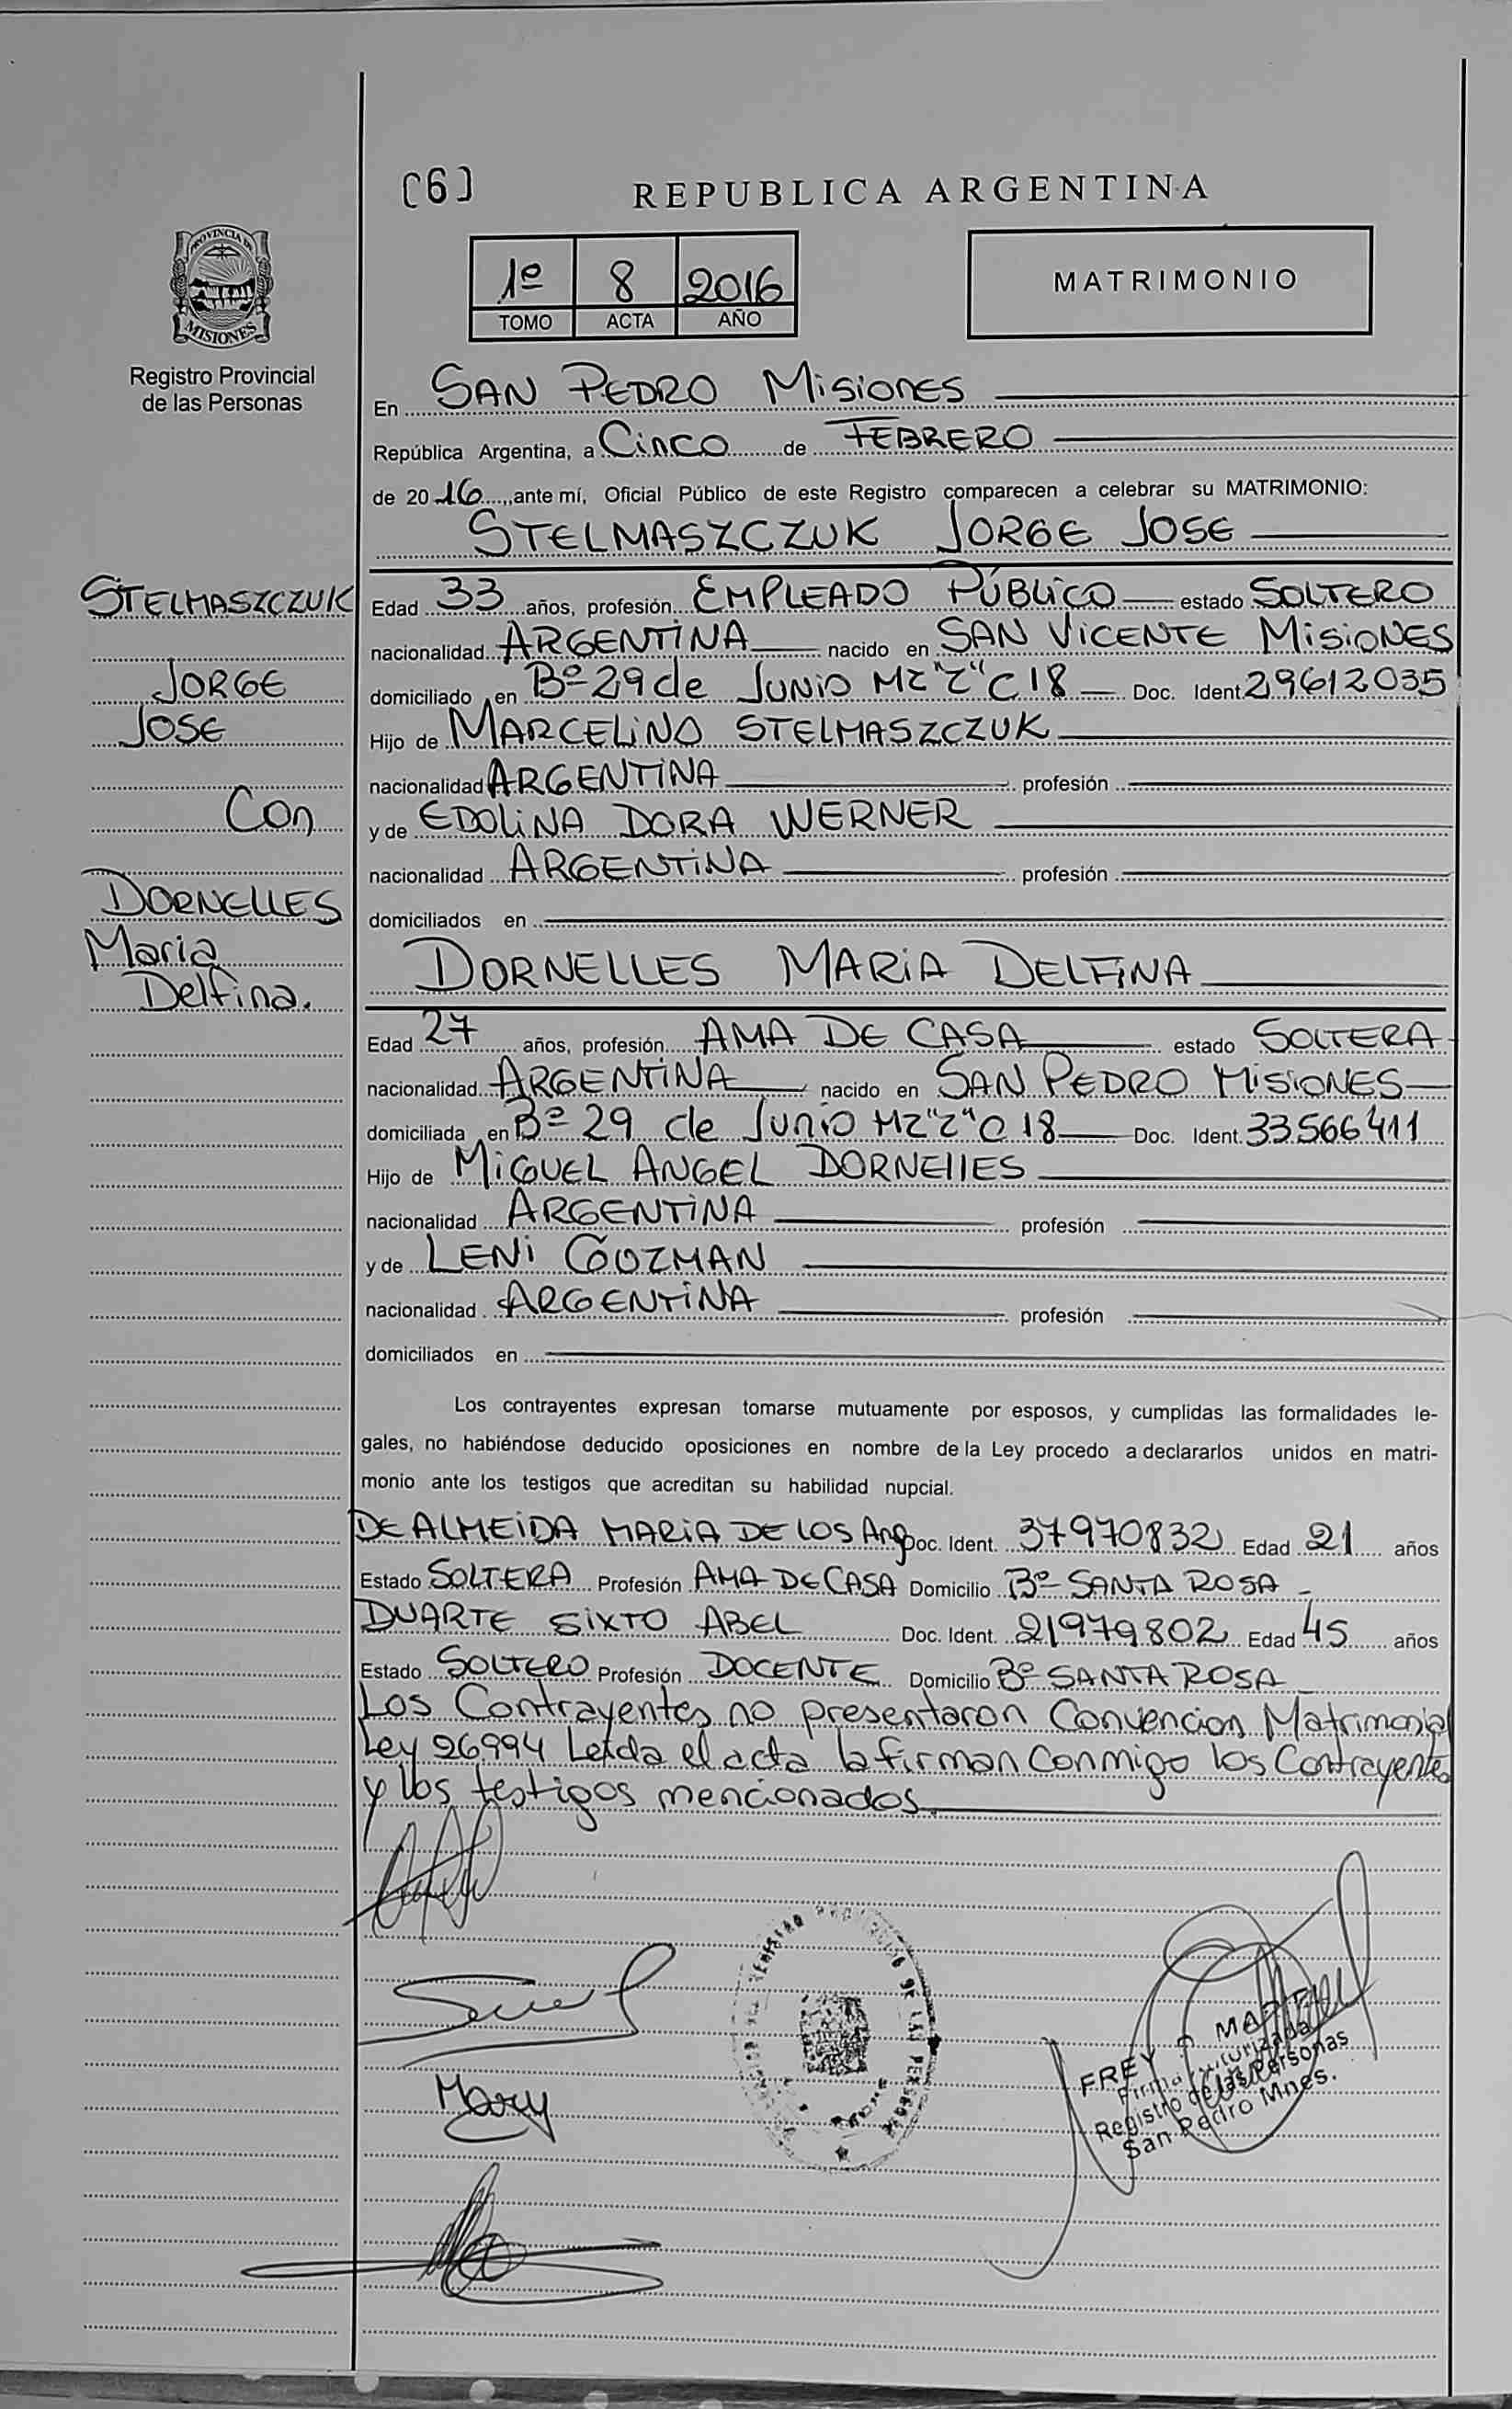 [6]
REPUBLICA ARGENTINA
PROVINCIA DE
MISIONES
Registro Provincial
de las Personas
1º 8 2016
TOMO ACTA AÑO
MATRIMONIO
En SAN PEDRO MISIONES
República Argentina, a CINCO de FEBRERO
de 2016, ante mí, Oficial Público de este Registro comparecen a celebrar su MATRIMONIO:
STELMASZCZUK JORGE JOSE
STELMASZCZUK
JORGE
JOSE
Con
DORNELLES
Maria
Delfina.
Edad 33 años, profesión EMPLEADO PÚBLICO estado SOLTERO
nacionalidad ARGENTINA nacido en SAN VICENTE MISIONES
domiciliado en Bº 29 de JUNIO MZ "Z" C 18 Doc. Ident. 29612035
Hijo de MARCELINO STELMASZCZUK
nacionalidad ARGENTINA profesión
y de EDOLINA DORA WERNER
nacionalidad ARGENTINA profesión
domiciliados en
DORNELLES MARIA DELFINA
Edad 27 años, profesión AMA DE CASA estado SOLTERA
nacionalidad ARGENTINA nacido en SAN PEDRO MISIONES
domiciliada en Bº 29 de Junio MZ "Z" C 18 Doc. Ident. 33566411
Hijo de MIGUEL ANGEL DORNELLES
nacionalidad ARGENTINA profesión
y de LENI GUZMAN
nacionalidad ARGENTINA profesión
domiciliados en
Los contrayentes expresan tomarse mutuamente por esposos, y cumplidas las formalidades le-
gales, no habiéndose deducido oposiciones en nombre de la Ley procedo a declararlos unidos en matri-
monio ante los testigos que acreditan su habilidad nupcial.
DE ALMEIDA MARIA DE LOS Ang Doc. Ident. 37970832 Edad 21 años
Estado SOLTERA Profesión AMA DE CASA Domicilio Bº SANTA ROSA
DUARTE SIXTO ABEL Doc. Ident. 21979802 Edad 45 años
Estado SOLTERO Profesión DOCENTE Domicilio Bº SANTA ROSA
Los Contrayentes no presentaron Convencion Matrimonial
Ley 26994 Leida el acta la firman conmigo los Contrayentes
y los testigos mencionados.
Mary
REGISTRO PROVINCIAL DE LAS PERSONAS
FREY
Firma Autorizada
Registro de las Personas
San Pedro Mnes.